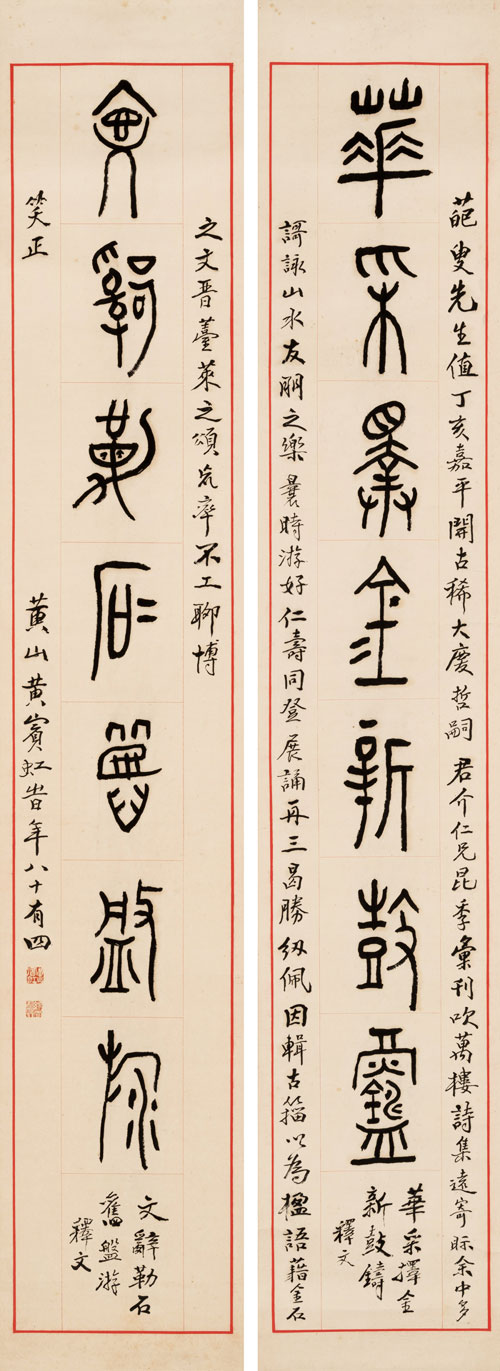 葩叟先生值丁亥嘉平開古稀大慶哲嗣君介仁兄昆季彙刊吹萬樓詩集遠寄眎余中多
華采擇金新鼓鑄
華采擇金
新鼓鑄
釋文
謌詠山水友朋之樂曩時游好仁壽同登展誦再三曷勝紉佩因輯古籀以為楹語藉金石
之文晉薹萊之頌荒率不工聊博
文辭勒石舊盤游
文辭勒石
舊盤游
釋文
笑正
黄山黄賓虹旹年八十有四